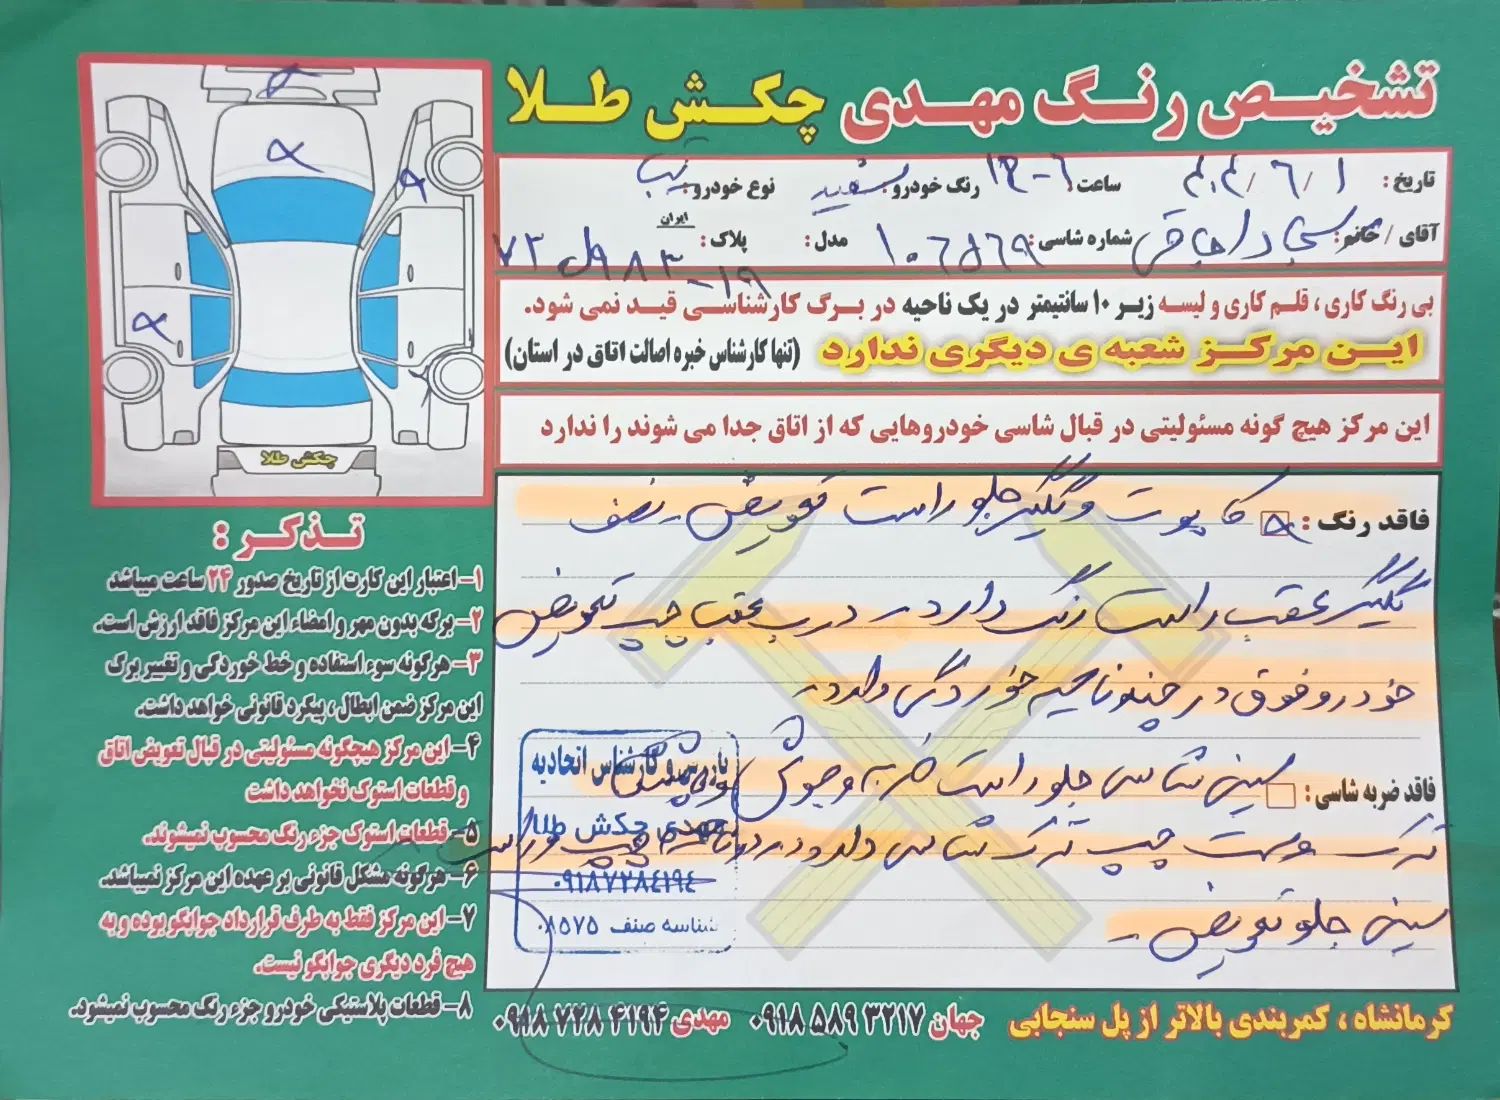 تشخیص رنگ مهدی چکش طلا
تاریخ: ۱/۶/۴۰۴ ساعت: رنگ خودرو: سفید نوع خودرو: تیبا
آقای / خانم: شماره شاسی: ۱۰۶۵۶۹ مدل: پلاک: ایران
۱۹
بی رنگ کاری ، قلم کاری و لیسه زیر ۱۰ سانتیمتر در یک ناحیه در برگ کارشناسی قید نمی شود.
این مرکز شعبه ی دیگری ندارد (تنها کارشناس خبره اصالت اتاق در استان)
این مرکز هیچ گونه مسئولیتی در قبال شاسی خودروهایی که از اتاق جدا می شوند را ندارد
فاقد رنگ: کاپوت و گلگیر جلو راست تعویض - نصف
گلگیر عقب راست رنگ دارد - درب عقب چپ تعویض
خودرو فوق در چند ناحیه خوردگی دارد -
فاقد ضربه شاسی: سینی شاسی جلو راست ضربه و جوش
ترک وسط چپ ترک شاسی دارد
سینی جلو تعویض -
بازرس و کارشناس اتحادیه
مهدی چکش طلا
۰۹۱۸۷۲۸۴۱۹۴
شناسه صنف ۰۸۵۷۵
چکش طلا
تذکر :
۱- اعتبار این کارت از تاریخ صدور ۲۴ ساعت میباشد
۲- برگه بدون مهر و امضاء این مرکز فاقد ارزش است.
۳- هرگونه سوء استفاده و خط خوردگی و تغییر برگ
این مرکز ضمن ابطال ، پیگرد قانونی خواهد داشت.
۴- این مرکز هیچگونه مسئولیتی در قبال تعویض اتاق
و قطعات استوک نخواهد داشت
۵- قطعات استوک جزء رنگ محسوب نمیشوند.
۶- هرگونه مشکل قانونی بر عهده این مرکز نمیباشد.
۷- این مرکز فقط به طرف قرارداد جوابگو بوده و به
هیچ فرد دیگری جوابگو نیست.
۸- قطعات پلاستیکی خودرو جزء رنگ محسوب نمیشود.
کرمانشاه ، کمربندی بالاتر از پل سنجابی جهان ۰۹۱۸ ۵۸۹ ۳۲۱۷ مهدی ۰۹۱۸ ۷۲۸ ۴۱۹۴